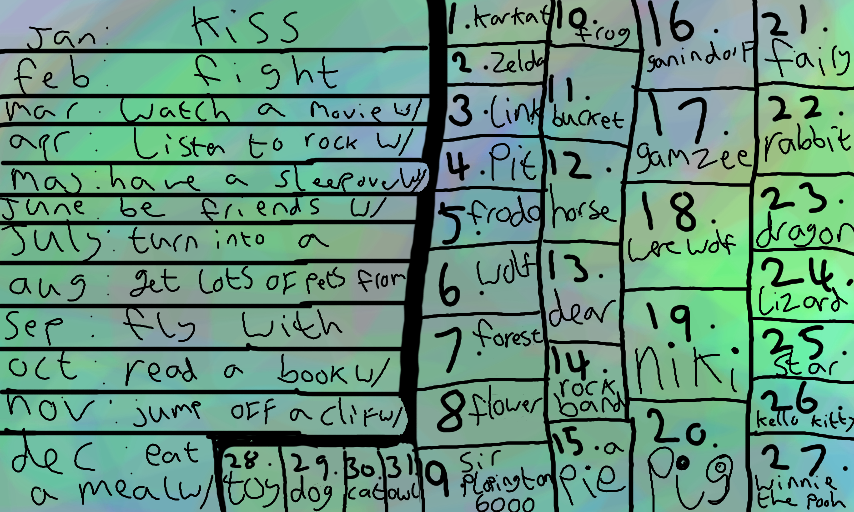 Jan: Kiss
feb: fight
mar: watch a movie w/
apr: Listen to rock w/
may: have a sleepover w/
June: be friends w/
July: turn into a
aug: get lots of pets from
Sep: fly with
oct: read a book w/
nov: jump off a clif w/
dec: eat
a meal w/
1. Karkat
2. Zelda
3. Link
4. Pit
5. frodo
6. wolf
7. forest
8 flower
9 sir
plopington
6000
10. frog
11. bucket
12. horse
13. dear
14. rock
band
15. a
pie
16. ganindorf
17. gamzee
18. were wolf
19. niki
20. Pig
21. fairy
22. rabbit
23. dragon
24. Lizard
25. star
26. hello kitty
27. winnie
the pooh
28. toy
29. dog
30. cat
31. owl